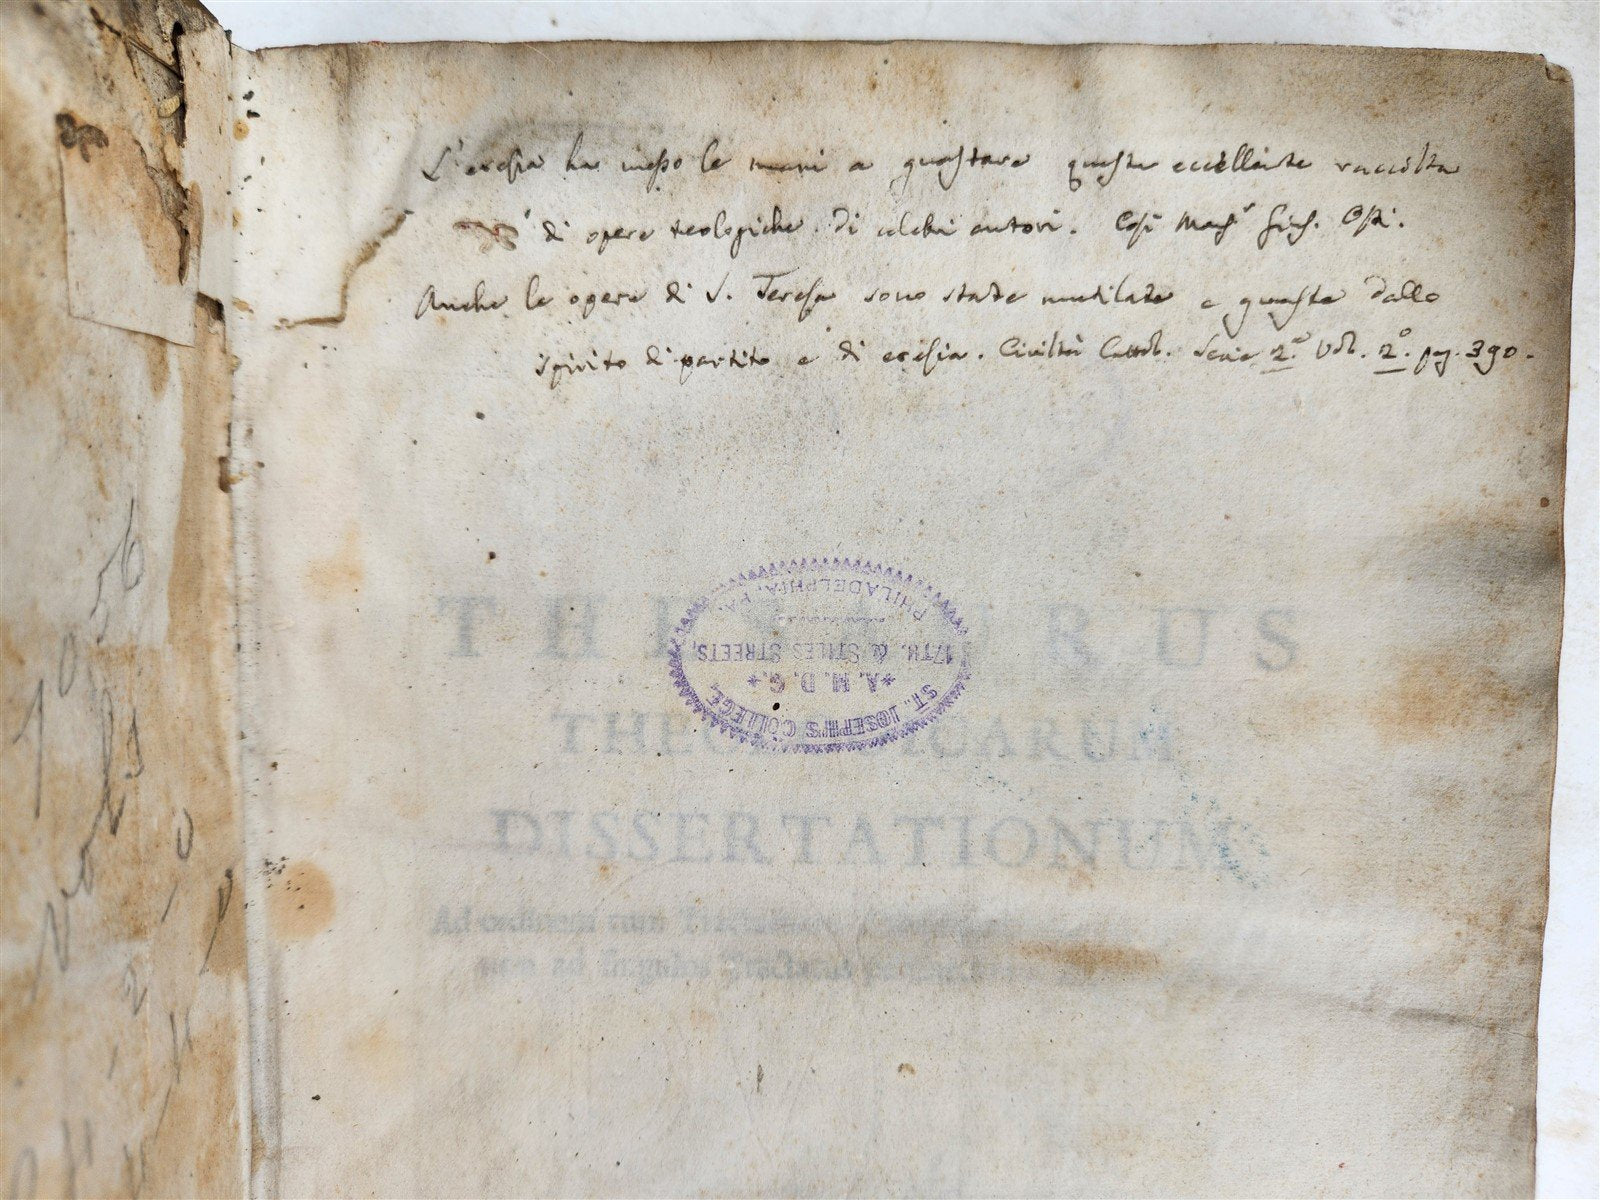 L'eresia ha messo le mani a guastare questa eccellente raccolta
di opere teologiche di celebri autori. Così
Anche le opere di S. Teresa sono state mutilate e guaste dallo
spirito di partito e di eresia. Civiltà Cattol. Serie 2.ª Vol. 2.º pag. 390.
PHILADELPHIA, PA.
17TH. & STILES STREETS,
*A. M. D. G.*
ST. JOSEPH'S COLLEGE,
THESAURUS
THEOLOGICARUM
DISSERTATIONUM
Ad ordinem tum
ad singulos Tractatus
1056
vols